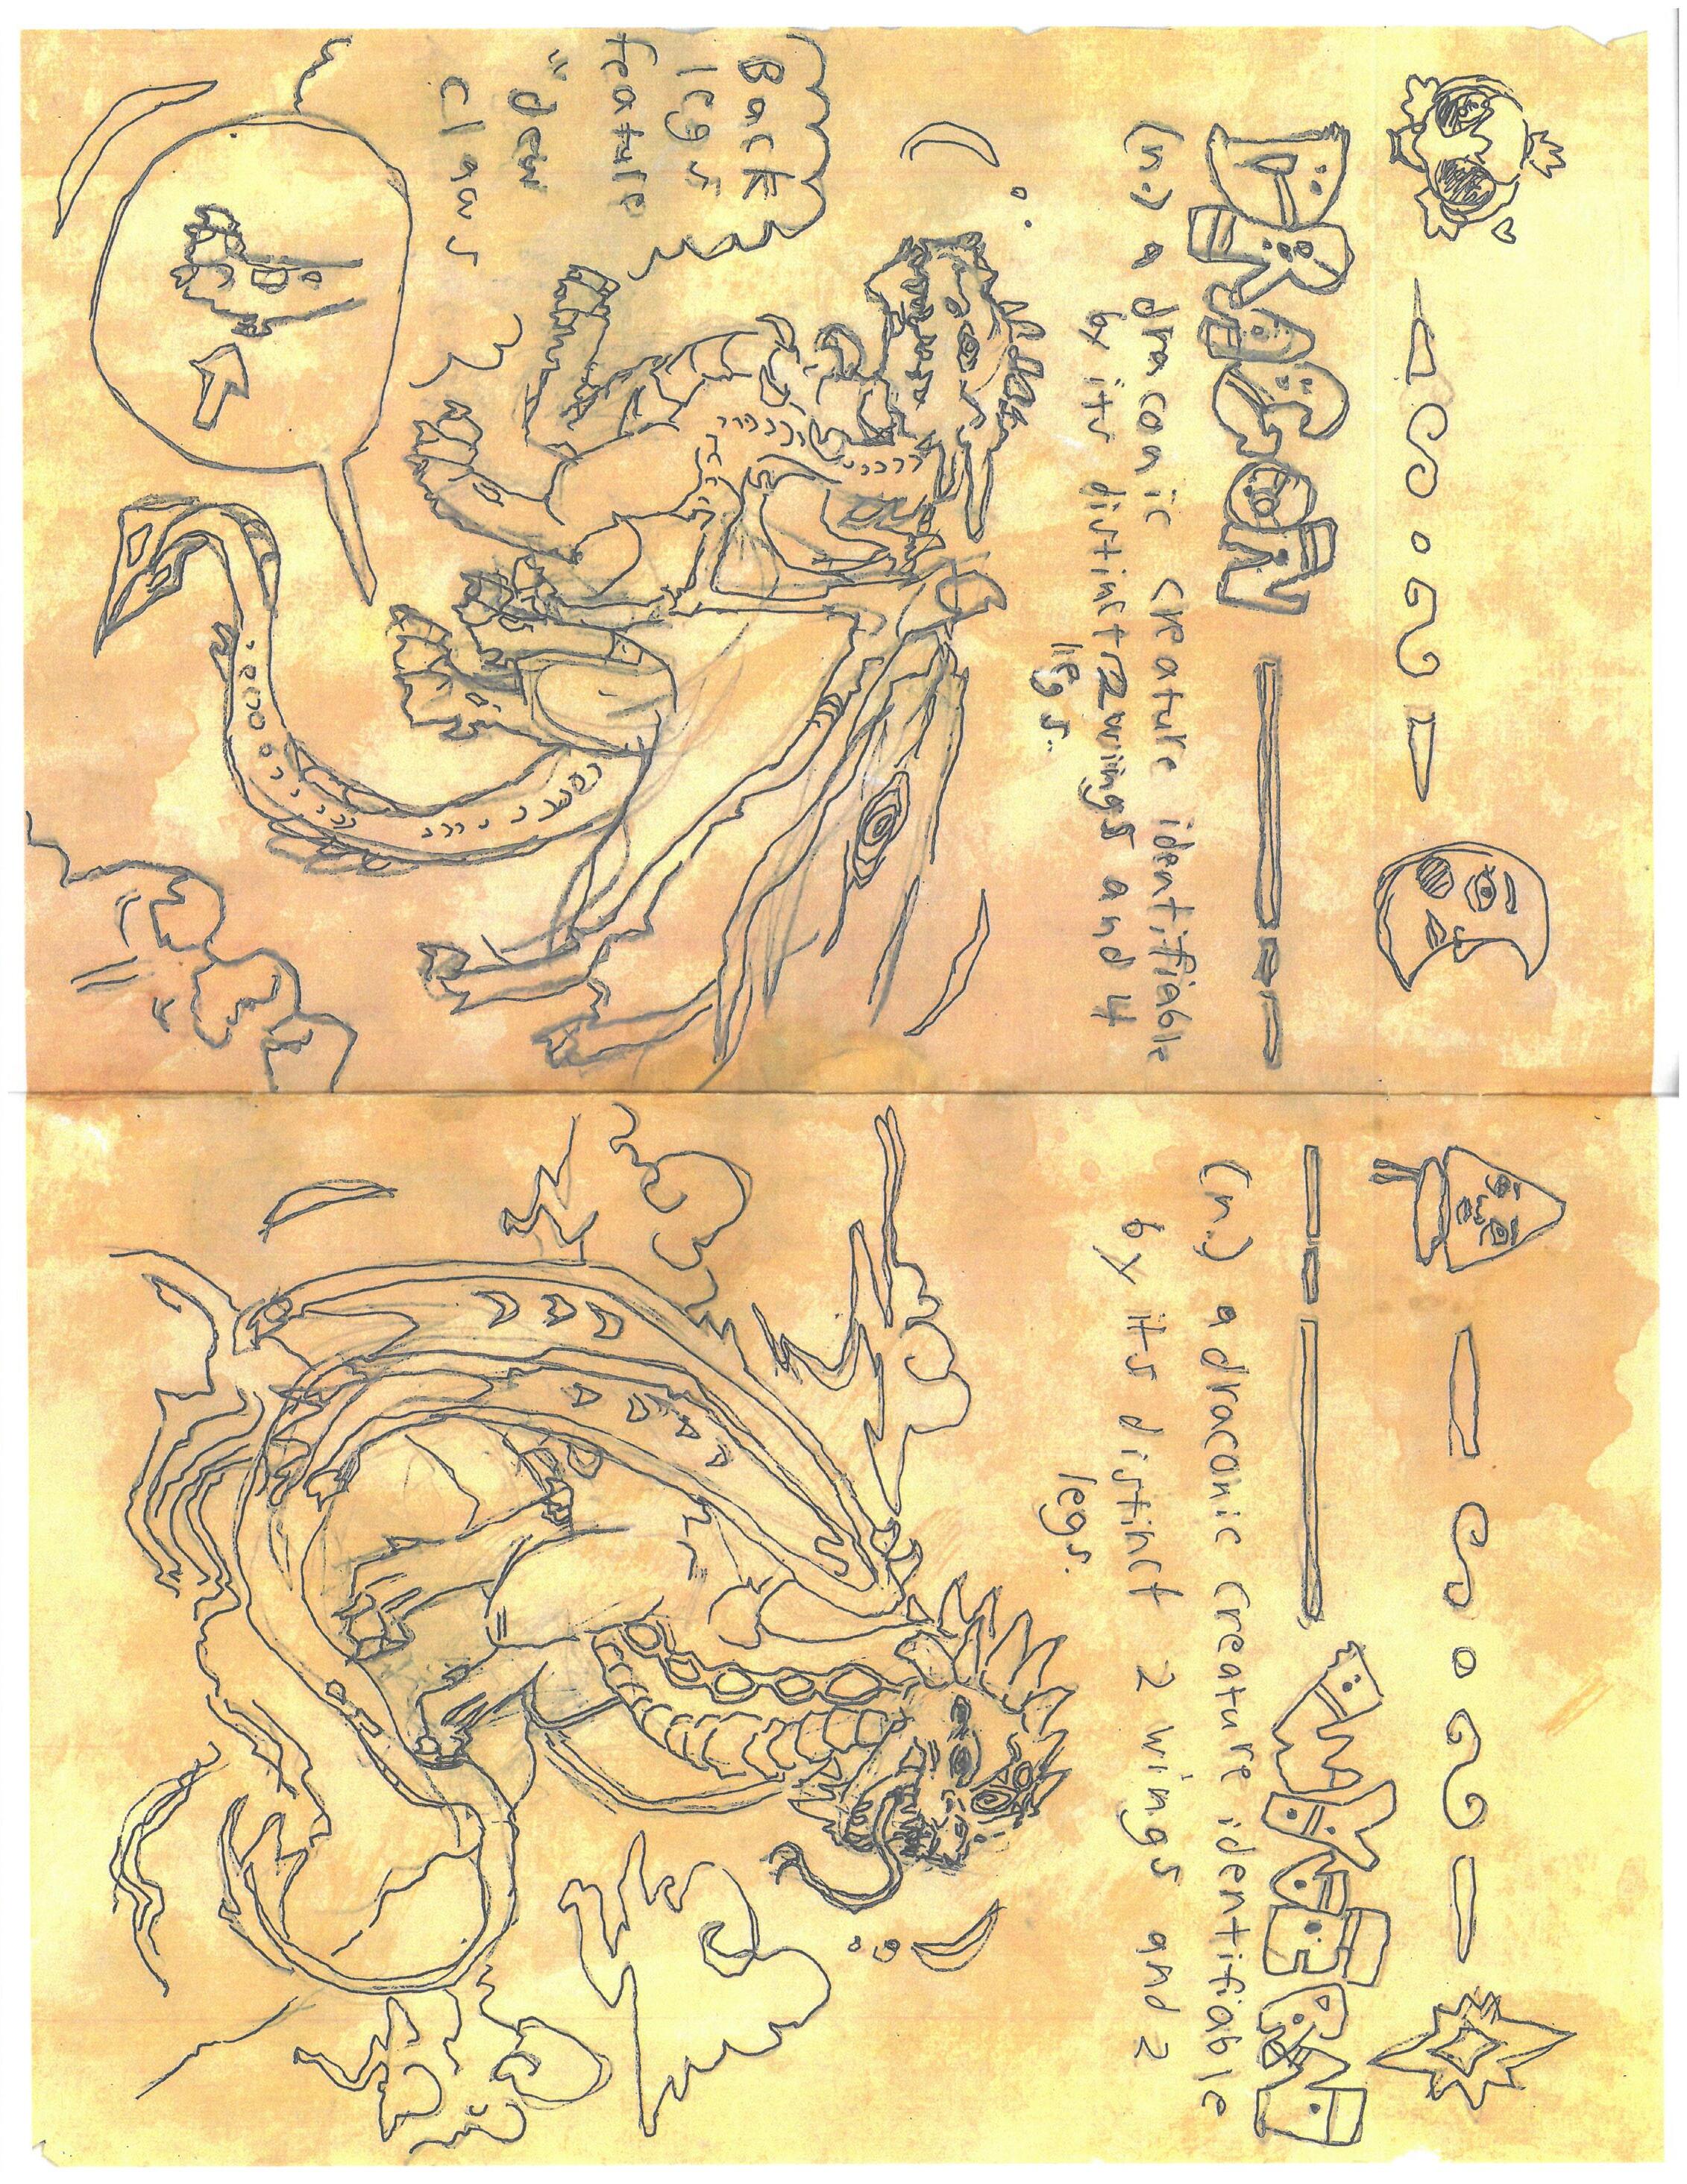 DRAGON
(n.) a draconic creature identifiable
by its distinct 2 wings and 4
legs.
Back
legs
feature
"dew
claws
WYVERN
(n.) a draconic creature identifiable
by its distinct 2 wings and 2
legs.